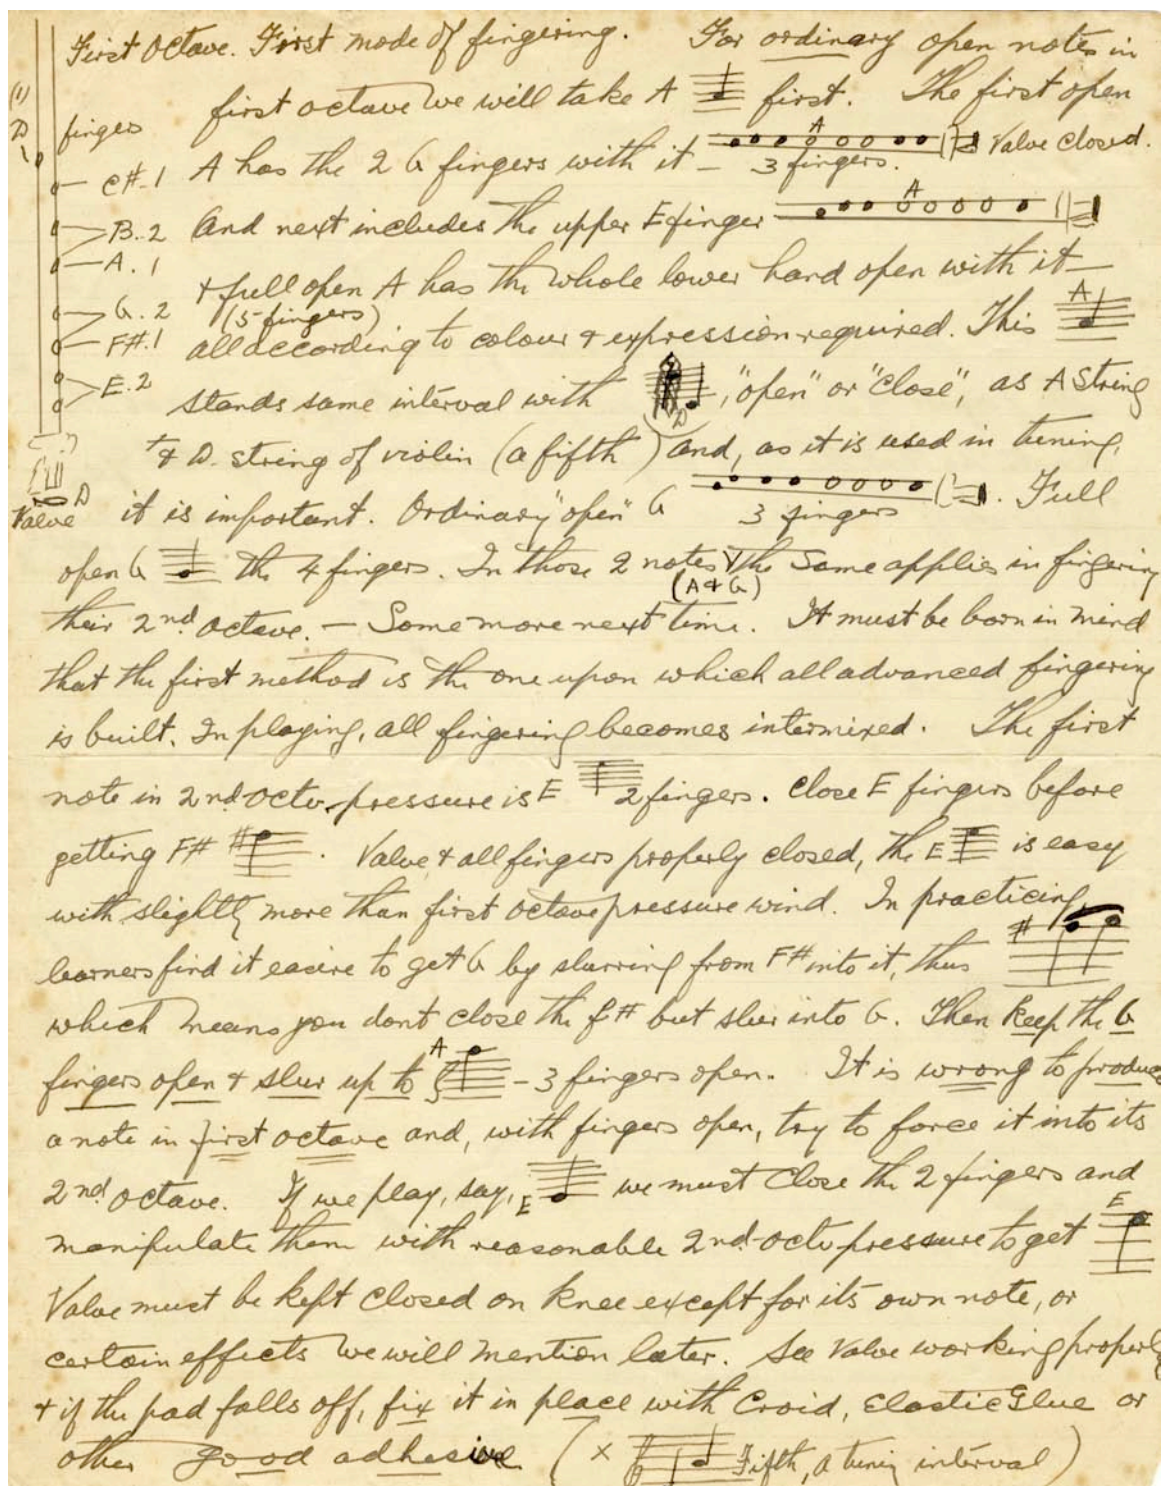 First Octave. First mode of fingering. For ordinary open notes in
first octave we will take A first. The first open
A has the 2 G fingers with it — A 3 fingers. Valve closed.
And next includes the upper E finger A
& full open A has the whole lower hand open with it —
(5 fingers)
all according to colour & expression required. This A
stands same interval with D, "open" or "close", as A String
+ & D. string of violin (a fifth) and, as it is used in tuning,
it is important. Ordinary "open" G 3 fingers. Full
open G the 4 fingers. In those 2 notes (A & G) the same applies in fingering
their 2nd octave. — Some more next time. It must be born in mind
that the first method is the one upon which all advanced fingering
is built. In playing, all fingering becomes intermixed. The first
note in 2nd Octv. pressure is E 2 fingers. Close E fingers before
getting F# #. Valve & all fingers properly closed, the E is easy
with slightly more than first octave pressure wind. In practicing,
learners find it easire to get G by slurring from F# into it, thus #
which means you dont close the f# but slur into G. Then keep the G
fingers open & slur up to A — 3 fingers open. It is wrong to produce
a note in first octave and, with fingers open, try to force it into its
2nd octave. If we play, say, E we must close the 2 fingers and
manipulate them with reasonable 2nd-octv pressure to get E
Valve must be kept closed on knee except for its own note, or
certain effects we will mention later. See Valve working properly
& if the pad falls off, fix it in place with Croid, Elastic Glue or
other good adhesive (× Fifth, a tuning interval)
(1)
D
fingers
C#.1
B.2
A.1
G.2
F#.1
E.2
D
Valve